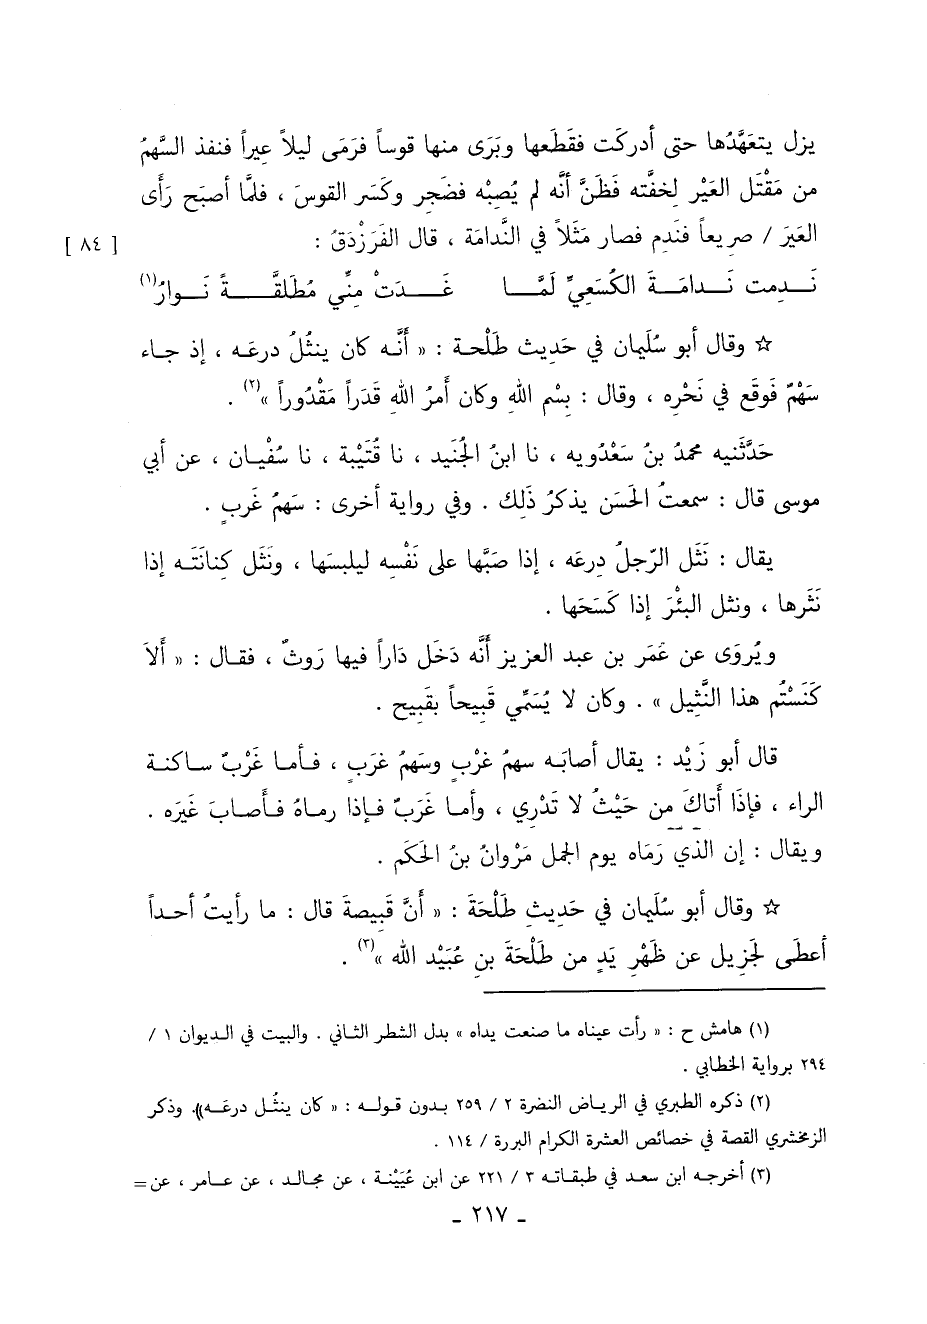 يزل يتعَهَّدُها حتى أدركَت فقَطَعها وبَرَى منها قوساً فرَمَى ليلاً عِيراً فنفذ السَّهمُ
من مَقْتَل العَيْر لِخفَّته فَظَنَّ أنَّه لم يُصِبْه فضَجِر وكَسَر القوسَ ، فلمَّا أصبَح رَأَى
العَيَرَ / صريعاً فنَدِم فصار مَثَلاً في النَّدامة ، قال الفَرَزْدَقُ :
[ ٨٤ ]
نَـدِمت نَـدامَـةَ الكُسَعِيِّ لَمَّـا غَـدَتْ مِنِّي مُطَلقَّـةً نَـوارُ(١)
☆ وقال أبو سُلَيمان في حَدِيث طَلْحة : « أنَّـه كان ينثُلُ دِرعَـه ، إذ جـاء
سَهْمٌ فَوقَع في نَحْرِه ، وقال : بِسْم اللهِ وكان أَمرُ اللهِ قَدَراً مَقْدُوراً »(٢) .
حَدَّثَنيه محمدُ بنُ سَعْدُويه ، نا ابنُ الجُنَيد ، نا قُتَيْبة ، نا سُفْيان ، عن أبي
موسى قال : سمعتُ الحَسَن يذكرُ ذَلِك . وفي رواية أخرى : سَهمُ غَربٍ .
يقال : نَثَل الرّجلُ دِرعَه ، إذا صَبَّها على نَفْسِه ليلبسَها ، ونَثَل كِنانَتَـه إذا
نَثَرها ، ونثل البئْرَ إذا كَسَحَها .
ويُروَى عن عُمَر بن عبد العزيز أنَّه دَخَل دَاراً فيها رَوثٌ ، فقـال : « أَلاَ
كَنَسْتُم هذا النَّثِيل » . وكان لا يُسَمِّي قَبِيحاً بقَبِيح .
قال أبو زَيْد : يقال أصابَـه سهمُ غرْبٍ وسَهمُ غرَبٍ ، فـأمـا غَرْبٌ سـاكنـة
الراء ، فإذَا أتاكَ من حَيْثُ لا تَدْرِي ، وأمـا غَرَبٌ فـإذا رمـاهُ فـأصـابَ غَيَره .
ويقال : إن الذّي رَمَاه يوم الجمل مَرْوانُ بنُ الحَكَم .
☆ وقال أبو سُلَيمان في حَدِيثِ طَلْحَة : « أَنَّ قَبِيصةَ قال : ما رأيتُ أحـداً
أعطَى لجَزِيل عن ظَهْرِ يَدٍ من طَلْحَةَ بنِ عُبَيْد الله »(٣) .
(١) هامش ح : « رأت عيناه ما صنعت يداه » بدل الشطر الثـاني . والبيت في الـديوان ١ /
٢٩٤ برواية الخطابي .
(٢) ذكره الطبري في الريـاض النضرة ٢ / ٢٥٩ بـدون قـولـه : « كان ينثُـل درعَـه». وذكر
الزمخشري القصة في خصائص العشرة الكرام البررة / ١١٤ .
(٣) أخرجـه ابن سعـد في طبقـاتـه ٣ / ٢٢١ عن ابن عُيَيْنـة ، عن مجالـد ، عن عـامر ، عن=
ـ ٢١٧ ـ